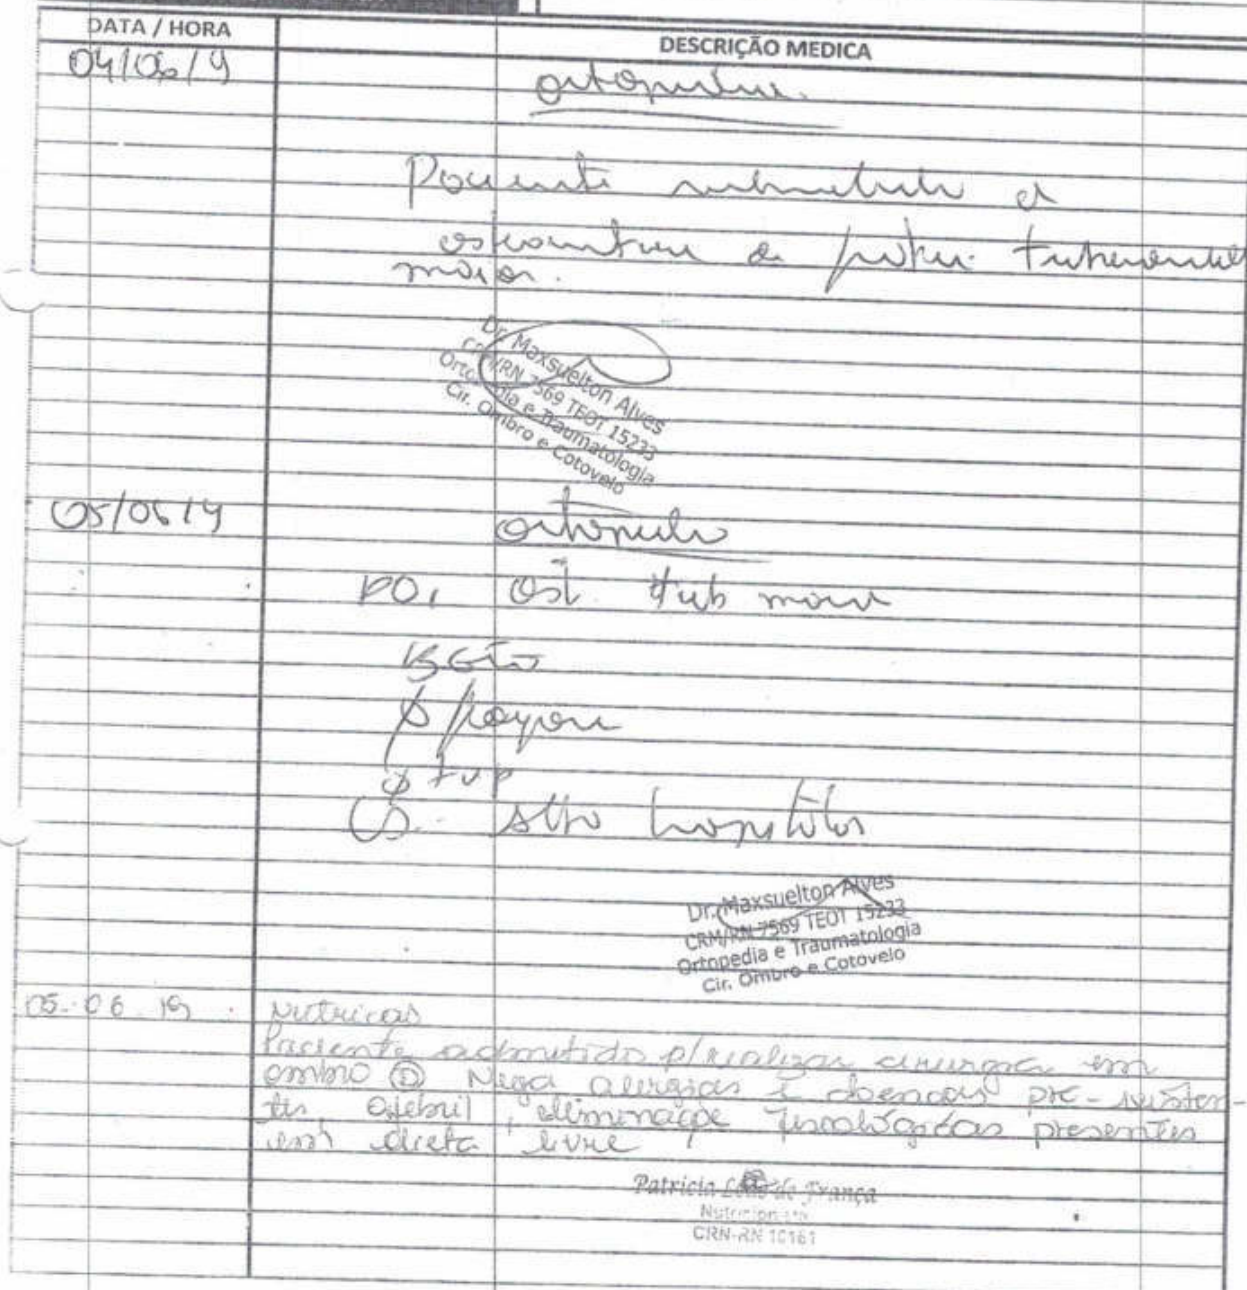 DATA / HORA
DESCRIÇÃO MEDICA
04/06/19
ortopedia.
Paciente submetido a
osteossintese de fratura tuberosidade
maior.
Dr. Maxsuelton Alves
CRM/RN 7569 TEOT 15233
Ortopedia e Traumatologia
Cir. Ombro e Cotovelo
05/06/19
ortopedia
PO, Ost. tub maior
BEG
Ø
Ø TVP
CD. Alta hospitalar
Dr. Maxsuelton Alves
CRM/RN 7569 TEOT 15233
Ortopedia e Traumatologia
Cir. Ombro e Cotovelo
05.06.19
Nutricao
Paciente admitido p/ realizar cirurgia em
ombro Nega alergias e doencas pre-existen-
tes, afebril, eliminaçoe fisiológicas presentes
em dieta livre
Patricia de França
Nutricionista
CRN-RN 10161